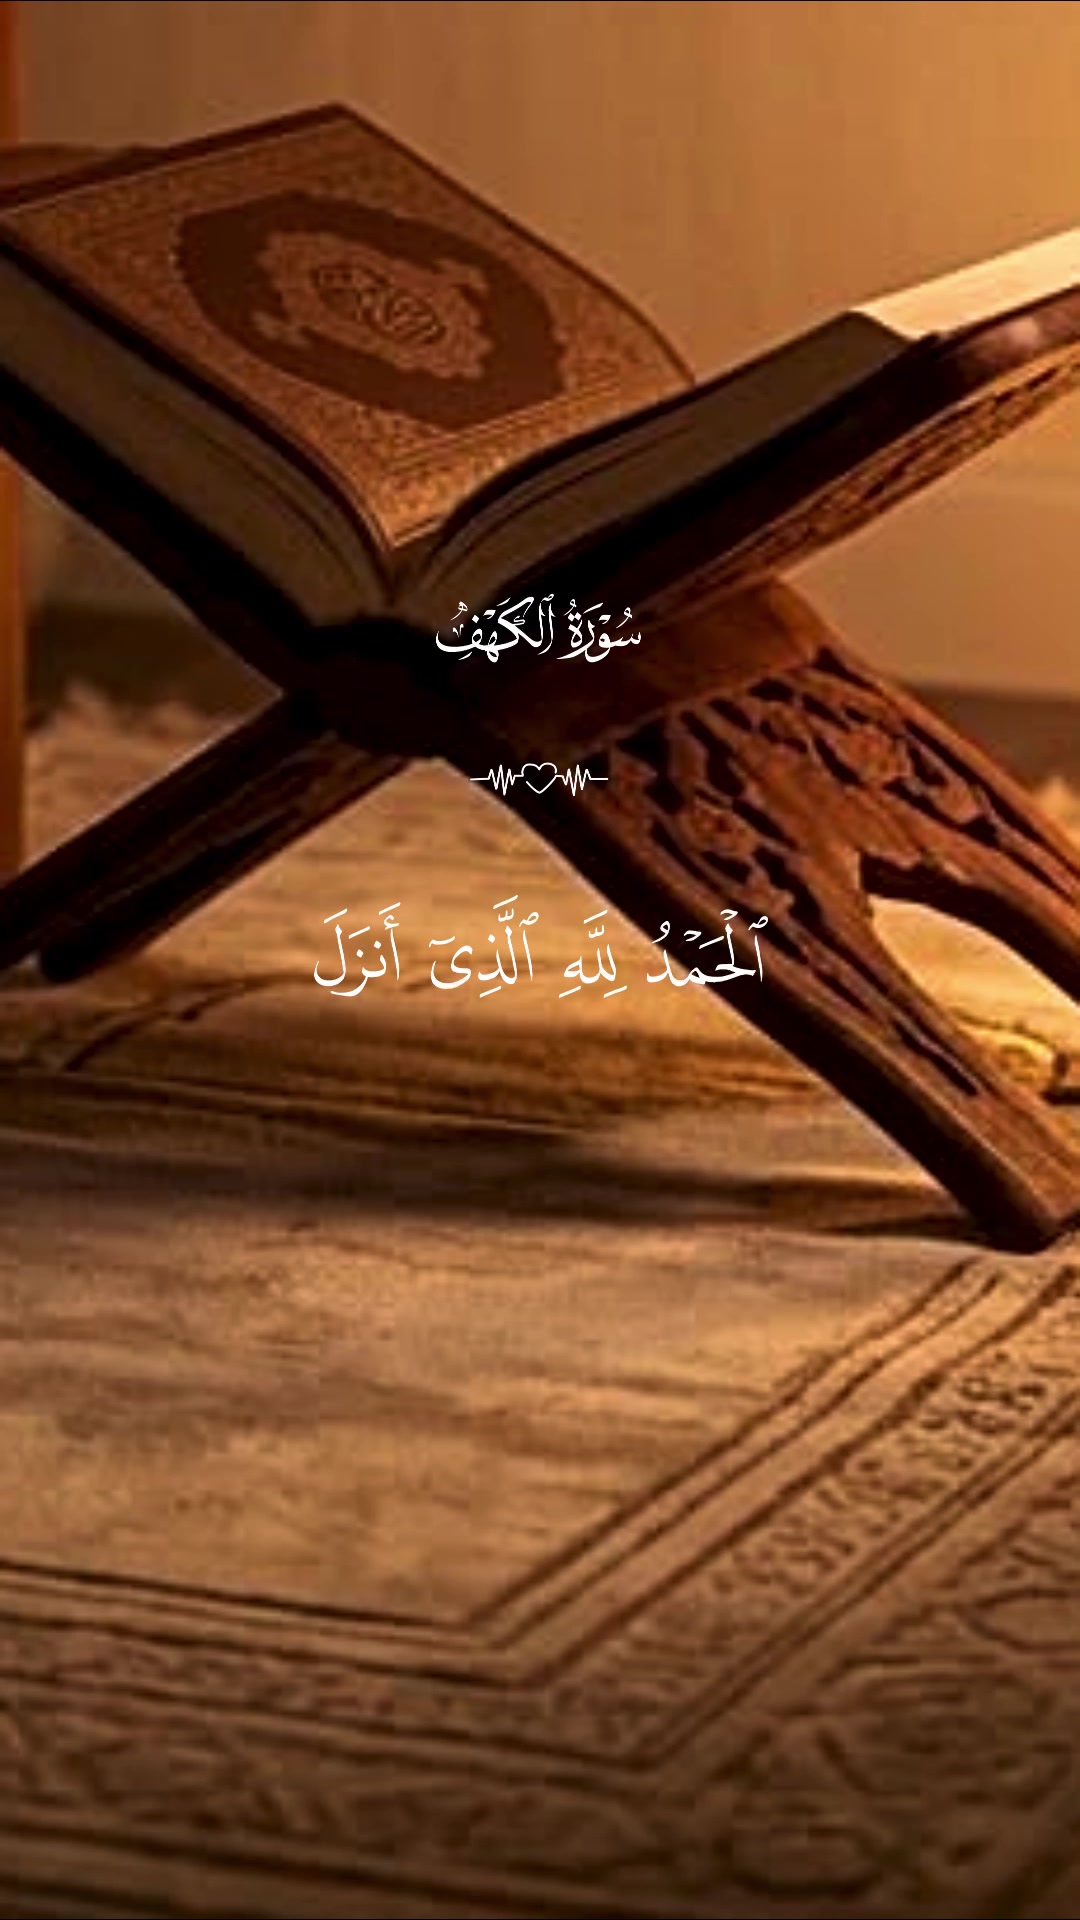 سُوۡرَةُ ٱلۡكَهۡفِ
ٱلۡحَمۡدُ لِلَّهِ ٱلَّذِىٓ أَنزَلَ